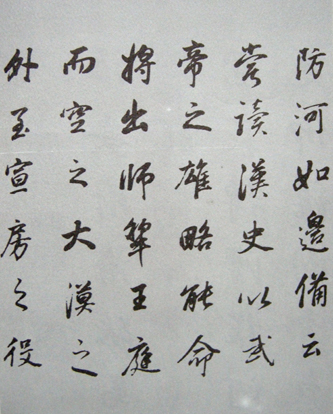 防河如邊備云
嘗讀漢史以武
帝之雄略能命
將出師犂王庭
而空之大漠之
外至宣房之役